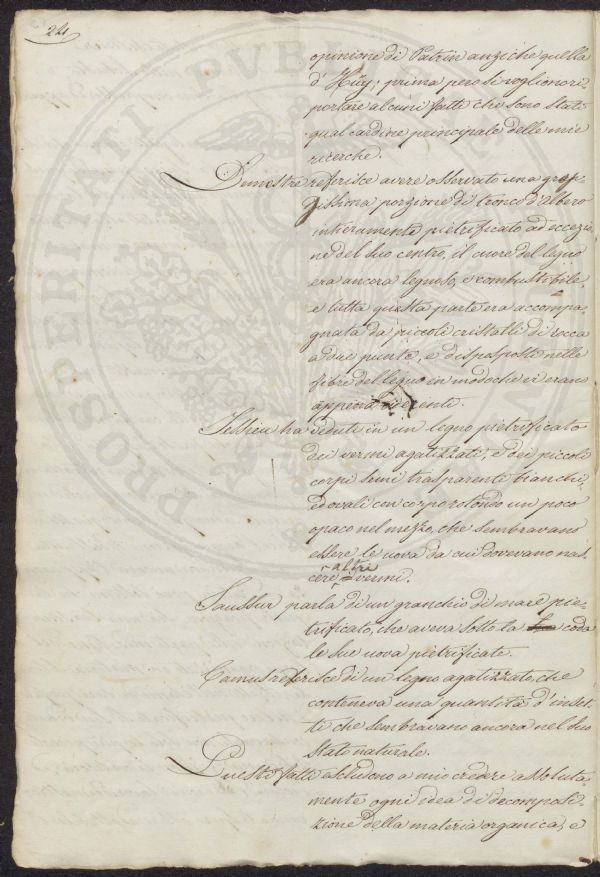 24
opinione di Patrin anzi che quella
d' Haüy; prima però si voglion ri-
portare alcuni fatti che sono stati
qual cardine principale delle mie
ricerche.
Demestre referisce avere osservato una gros-
sissima porzione di tronco d'albero
intieramente pietrificato ad eccezio-
ne del suo centro, il cuore del legno
era ancora legnoso, e combustibile,
e tutta questa parte era accompa-
gnata da piccoli cristalli di rocca
a due punte, e disposposti nelle
fibre del legno in modo che vi erano
appena aderenti.
Jessieu ha veduti in un legno pietrificato
dei vermi agatizzati, e dei piccoli
corpi semi trasparente bianchi,
ed ovali con corpo rotondo un poco
opaco nel mezzo, che sembravano
essere le uova da cui dovevano nas-
cere altri vermi.
Saussur parla di un granchio di mare pie-
trificato, che aveva sotto la coda
le sue uova pietrificate.
Camus referisce di un legno agatizzato, che
conteneva una quantità d'inset-
ti che sembravano ancora nel suo
stato naturale.
Questi fatti escludono a mio credere assoluta-
mente ogni idea di decomposi-
zione della materia organica, e
PROSPERITATI PUBLICAE